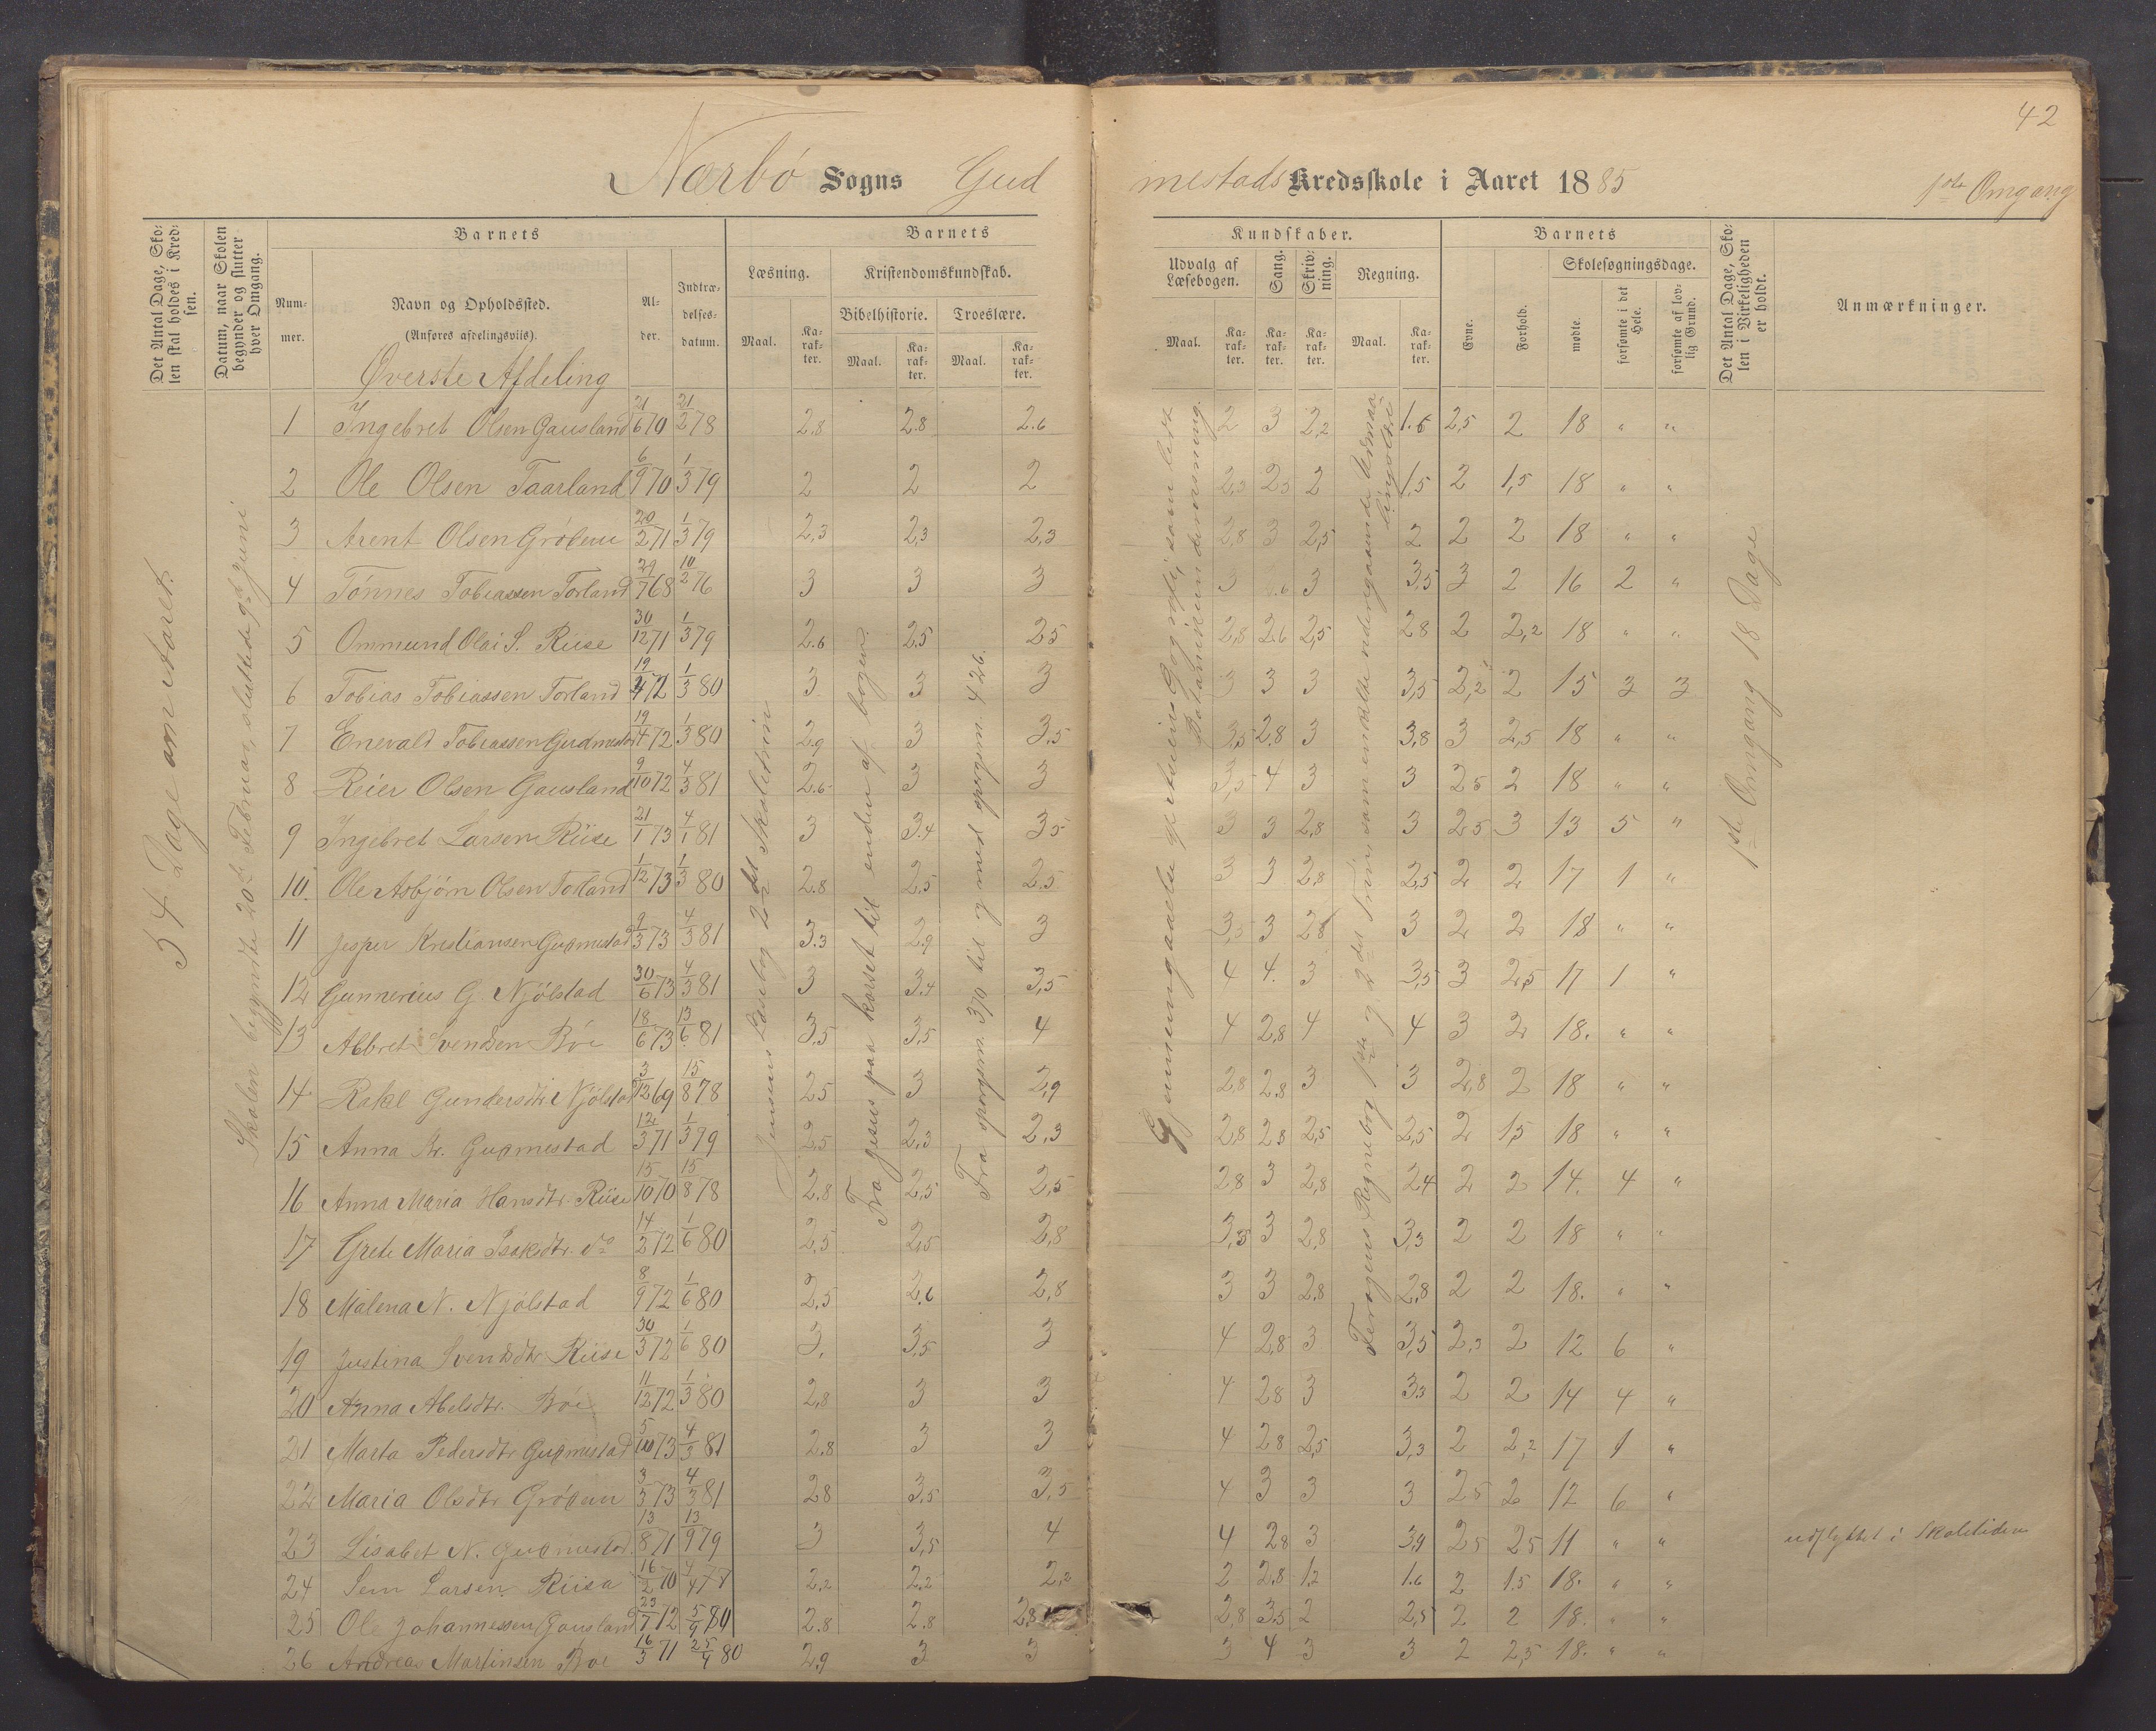 42
Nærbø Sogns Gudmestads Kredsskole i Aaret 1885 1ste Omgang
Det Antal Dage, Skolen skal holdes i Kredsen.
Datum, naar Skolen begynder og slutter hver Omgang.
Barnets
Nummer.
Navn og Opholdssted.
(Anføres afdelingsviis).
Alder.
Indtrædelsesdatum.
Barnets
Læsning.
Maal.
Karakter.
Kristendomskundskab.
Bibelhistorie.
Maal.
Karakter.
Troeslære.
Maal.
Karakter.
Kundskaber.
Udvalg af Læsebogen.
Maal.
Karakter.
Sang.
Karakter.
Skrivning.
Karakter.
Regning.
Maal.
Karakter.
Barnets
Evne.
Forhold.
Skolesøgningsdage.
mødte.
forsømte i det Hele.
forsømte af lovlig Grund.
Det Antal Dage, Skolen i Virkeligheden er holdt.
Anmærkninger.
Øverste Afdeling
54 Dage om aaret.
Skolen begyndte 20de Februar, sluttede 9de Juni
Jensens Læsebog 2det Skoletrin
Fra Jesus paa korset til enden af bogen.
Fra spørgsm. 370 til og med spørgsm. 426.
1ste Omgang 18 Dage
1 Ingebret Olsen Gausland 21/6 70 21/2 78 2.8 2.8 2.6 2 3 2,2 1.6 2,5 2 18 " "
2 Ole Olsen Taarland 6/9 70 1/3 79 2 2 2 2,3 2,3 2 1,5 2 1,5 18 " "
3 Arent Olsen Grødem 20/2 71 1/3 79 2,3 2,3 2,3 2,8 3 2,5 2 2 2 18 " "
4 Tønnes Tobiassen Torland 29/7 68 10/2 76 3 3 3 3 3 3,5 3 2 16 2 "
5 Ommund Olai S. Riise 30/12 71 1/3 79 2.6 2,5 2,5 2,8 2.6 2,5 2,8 2 2,2 18 " "
6 Tobias Tobiassen Torland 19/4 72 1/3 80 3 3 3 3 3 3 3,5 2,2 2 15 3 3
7 Enevald Tobiassen Gudmestad 19/4 72 1/3 80 2,9 3 3,5 3,5 2,8 3 3,8 3 2,5 18 " "
8 Reier Olsen Gausland 9/10 72 4/3 81 2.6 3 3 3,5 4 3 3 2,5 2 18 " "
9 Ingebret Larsen Riise 21/1 73 4/1 81 3 3.4 3,5 3 3 2,8 3 2,5 3 13 5 "
10. Ole Asbjørn Olsen Torland 1/12 73 1/3 80 2.8 2,5 2.5 3 3 2,8 2,5 2 2 17 1 "
11 Jesper Kristiansen Gudmestad 9/3 73 4/3 81 3.3 2.9 3 3,3 3 2,8 3 2 2 18 " "
12 Gunnerius G. Njølstad 30/6 73 4/3 81 3 3.4 3,5 4 4. 3 3,5 3 2,5 17 1 "
13 Albret Svendsen Bøe 18/6 73 13/6 81 3,5 3,5 4 4 2,8 4 4 3 2 18. " "
14 Rakel Gundersdtr Njølstad 3/12 69 15/8 78 2,5 3 2,9 2,8 2.8 3 3 2,8 2 18 " "
15 Anna Kr. Gudmestad 12/3 71 1/3 79 2,5 2,3 2,3 2,8 2,8 2,5 2,5 2 1,5 18 " "
16 Anna Maria Hansdtr. Riise 15/10 70 15/8 78 2.8 2,5 2,5 2,8 3 2,8 2,4 2 2 14. 4 "
17 Grete Maria Isakdtr. do 14/2 72 1/6 80 2,5 2,5 2,8 3,3 3 2,8 3,3 2 2 18 " "
18 Malena N. Njølstad 8/9 72 1/6 80 2,5 2.6 2,8 3 3 2.8 2,8 2 2 18. " "
19 Justina Svendsdtr Riise 30/3 72 1/6 80 3. 3,5 3 4 2,8 3 3,5 2,3 2 12 6 "
20 Anna Abelsdtr. Bøe 11/12 72 1/3 80 2,8 3 3 4 2,8 3 3,3 2 2 14 4 "
21 Marta Pedersdtr Gudmestad 5/10 73 4/3 81 2.8 3 3 4 2,8 2,5 3,3 2 2,2 17 1 "
22 Maria Olsdtr Grødem 3/3 73 4/3 81 2,8 3,5 3,5 4 3 3 3 2,5 2 12 6 "
23 Lisabet N. Gudmestad. 13/8 71 13/9 79 3 3,5 4 4 2,8 3 3,9 2,5 2,5 11 " " udflyttet i Skoletiden
24 Sem Larsen Riise 16/2 70 2,2 2.2 2,2 2 2.8 1.2 1.6 2 1.5 18. " "
25 Ole Johannessen Gausland 23/7 72 5/4 80 2.8 2.8 2,8 2,8 3.5 2 2,5 2 2 18. " "
26 Andreas Martinsen Bøe 16/3 71 25/4 80 2,9 3 3 3 4 3 3 2 2,5 18. " "